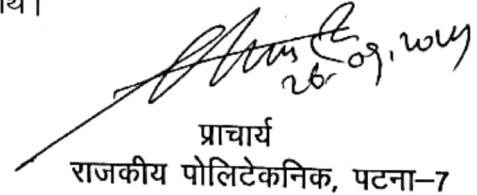 26.09.2024
प्राचार्य
राजकीय पोलिटेकनिक, पटना–7